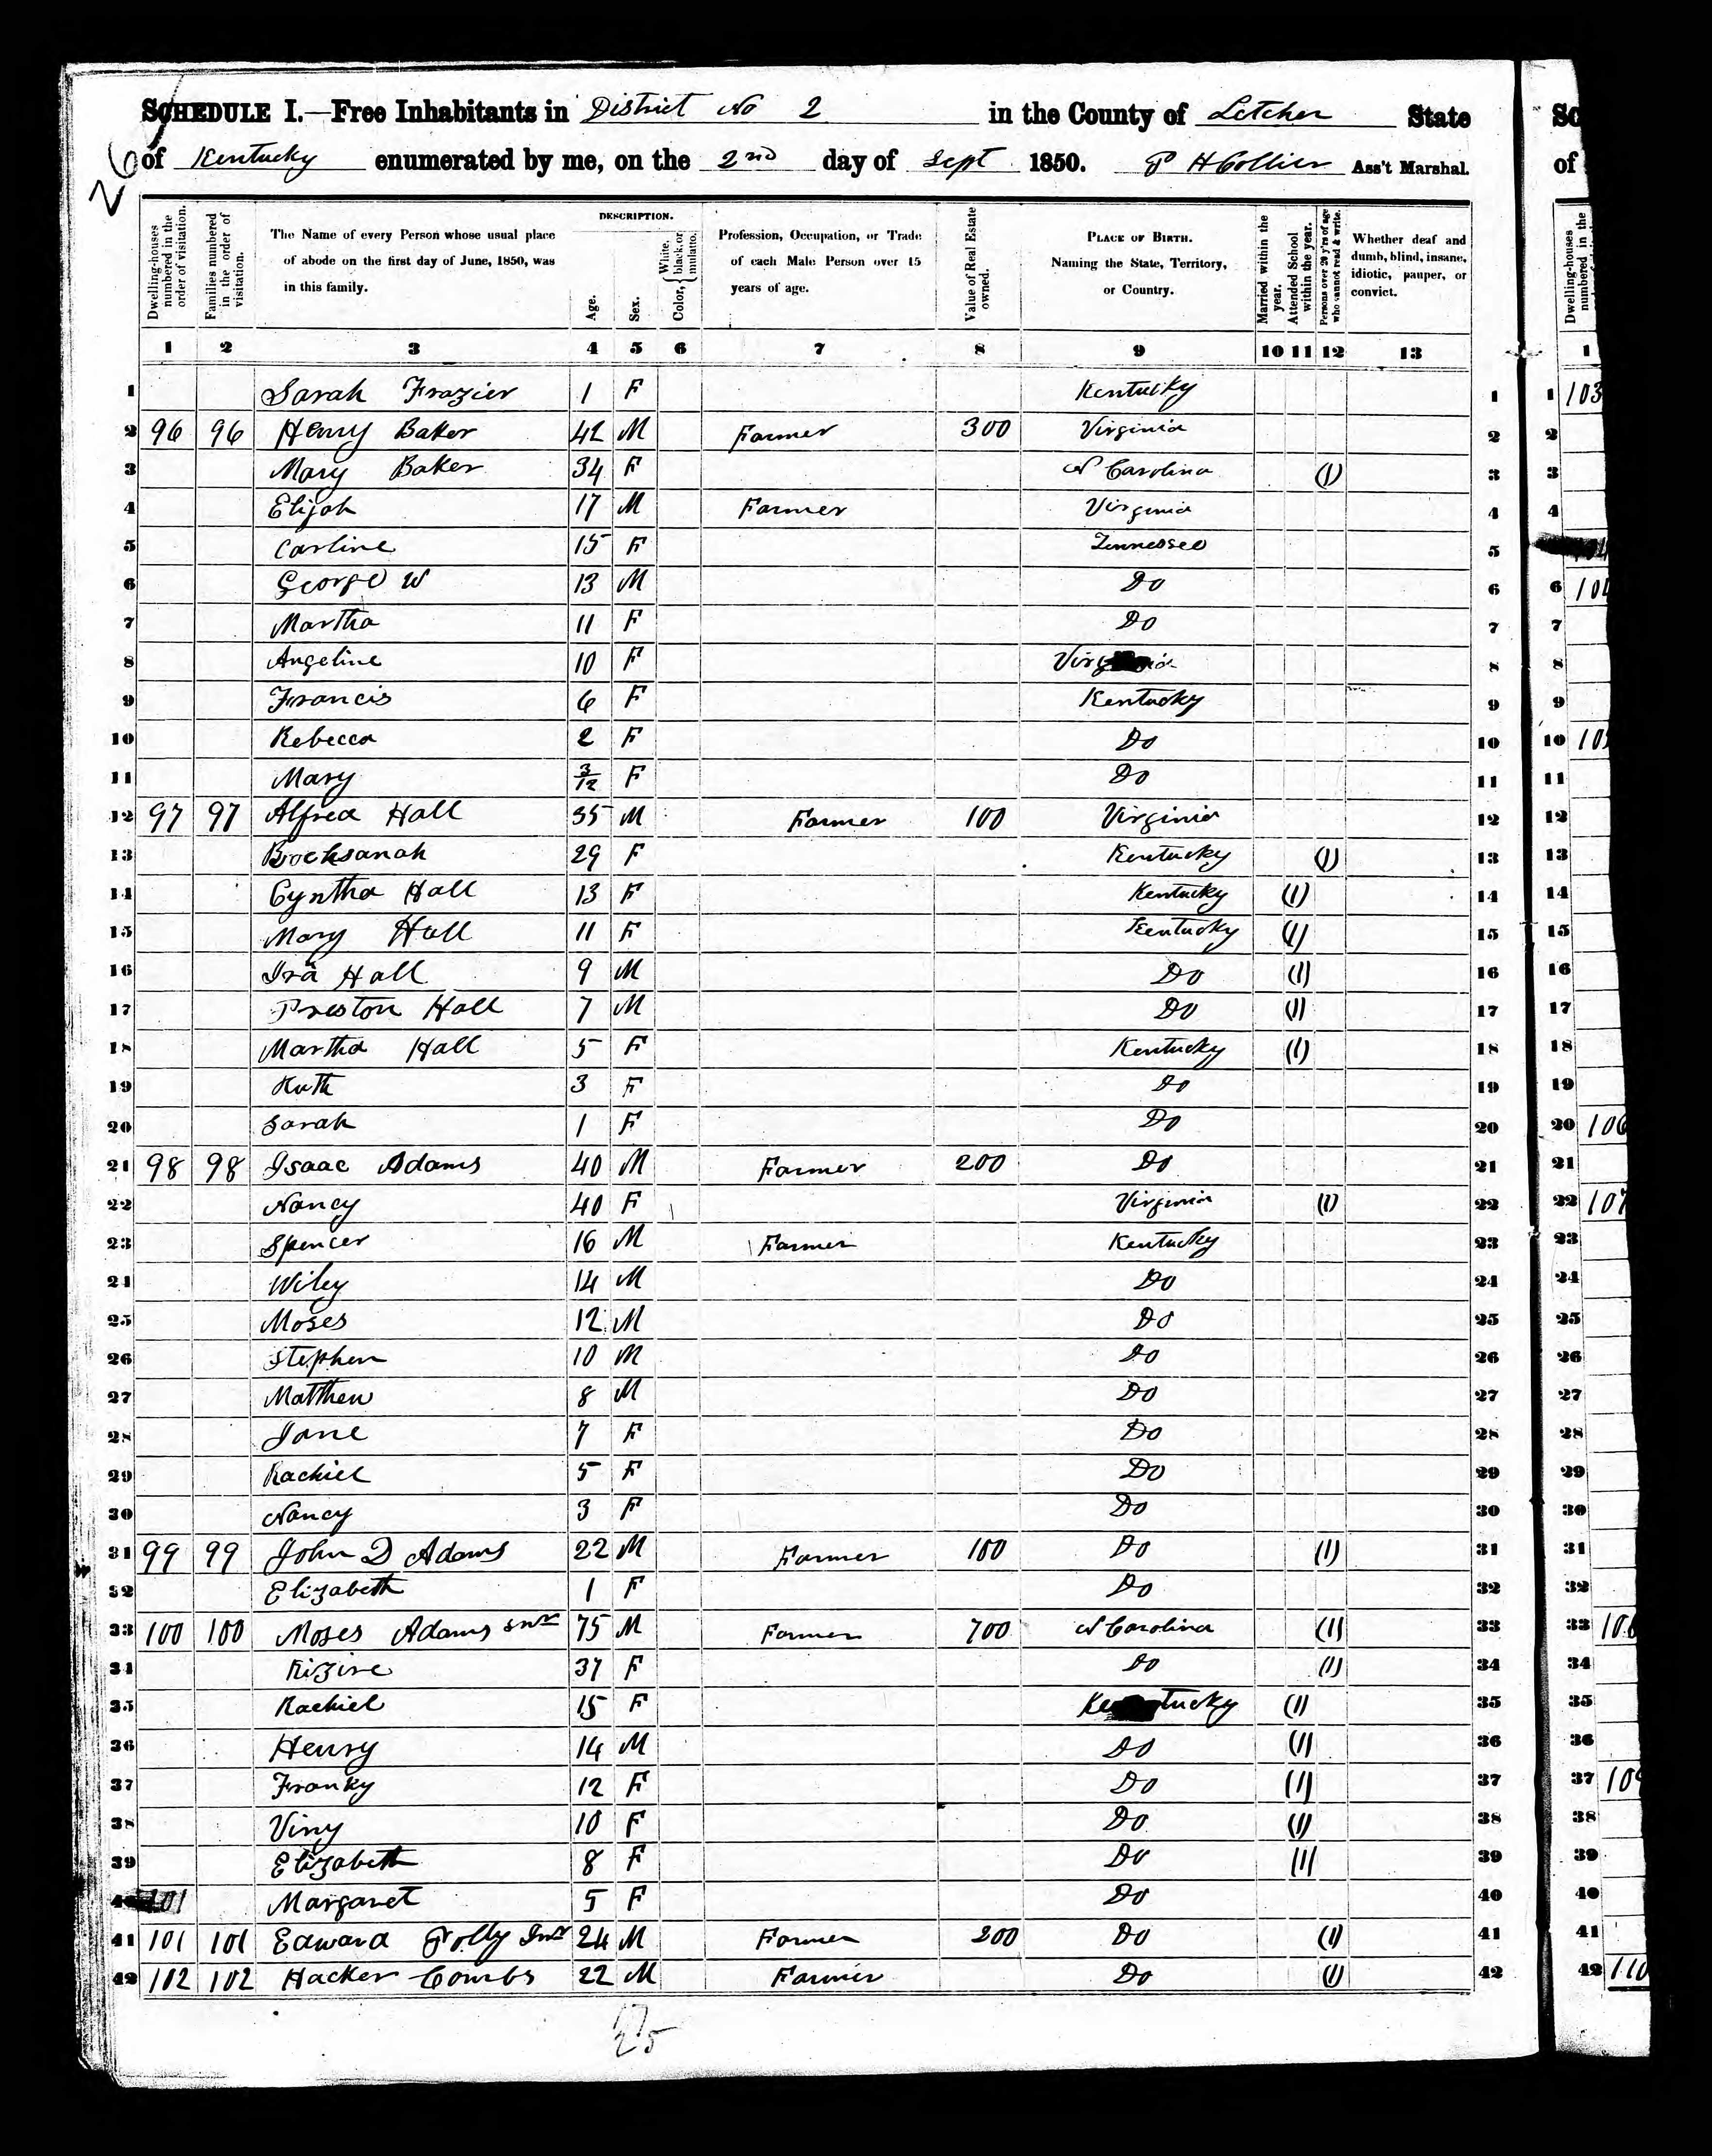 SCHEDULE I.—Free Inhabitants in District No 2 in the County of Letcher State
26 of Kentucky enumerated by me, on the 2nd day of Sept 1850. P H Collier Ass't Marshal.
Dwelling-houses numbered in the order of visitation.
Families numbered in the order of visitation.
The Name of every Person whose usual place of abode on the first day of June, 1850, was in this family.
DESCRIPTION.
Age.
Sex.
Color, { White, black, or mulatto.
Profession, Occupation, or Trade of each Male Person over 15 years of age.
Value of Real Estate owned.
PLACE OF BIRTH. Naming the State, Territory, or Country.
Married within the year.
Attended School within the year.
Persons over 20 y'rs of age who cannot read & write.
Whether deaf and dumb, blind, insane, idiotic, pauper, or convict.
1 2 3 4 5 6 7 8 9 10 11 12 13
1 Sarah Frazier 1 F Kentucky 1
2 96 96 Henry Baker 42 M Farmer 300 Virginia 2
3 Mary Baker 34 F N Carolina (1) 3
4 Elijah 17 M Farmer Virginia 4
5 Carline 15 F Tennessee 5
6 George W 13 M Do 6
7 Martha 11 F Do 7
8 Angeline 10 F Virginia 8
9 Francis 6 F Kentucky 9
10 Rebecca 2 F Do 10
11 Mary 3/12 F Do 11
12 97 97 Alfred Hall 35 M Farmer 100 Virginia 12
13 29 F Kentucky (1) 13
14 Cyntha Hall 13 F Kentucky (1) 14
15 Mary Hall 11 F Kentucky (1) 15
16 Ira Hall 9 M Do (1) 16
17 Preston Hall 7 M Do (1) 17
18 Martha Hall 5 F Kentucky (1) 18
19 Ruth 3 F Do 19
20 Sarah 1 F Do 20
21 98 98 Isaac Adams 40 M Farmer 200 Do 21
22 Nancy 40 F Virginia (1) 22
23 Spencer 16 M Farmer Kentucky 23
24 Wiley 14 M Do 24
25 Moses 12 M Do 25
26 Stephen 10 M Do 26
27 Matthew 8 M Do 27
28 Jane 7 F Do 28
29 Rachiel 5 F Do 29
30 Nancy 3 F Do 30
31 99 99 John D Adams 22 M Farmer 100 Do (1) 31
32 Elizabeth 1 F Do 32
33 100 100 Moses Adams snr 75 M Farmer 700 N Carolina (1) 33
34 Kizine 37 F Do (1) 34
35 Rachiel 15 F Kentucky (1) 35
36 Henry 14 M Do (1) 36
37 Franky 12 F Do (1) 37
38 Viny 10 F Do (1) 38
39 Elizabeth 8 F Do (1) 39
40 101 Margaret 5 F Do 40
41 101 101 Edward Polly Jnr 24 M Farmer 200 Do (1) 41
42 102 102 Hacker Combs 22 M Farmer Do (1) 42
25
SC
of
Dwelling-houses numbered in the
1
1 103
2
3
4
5
6 104
7
8
9
10 105
11
12
13
14
15
16
17
18
19
20 106
21
22 107
23
24
25
26
27
28
29
30
31
32
33 108
34
35
36
37 109
38
39
40
41
42 110